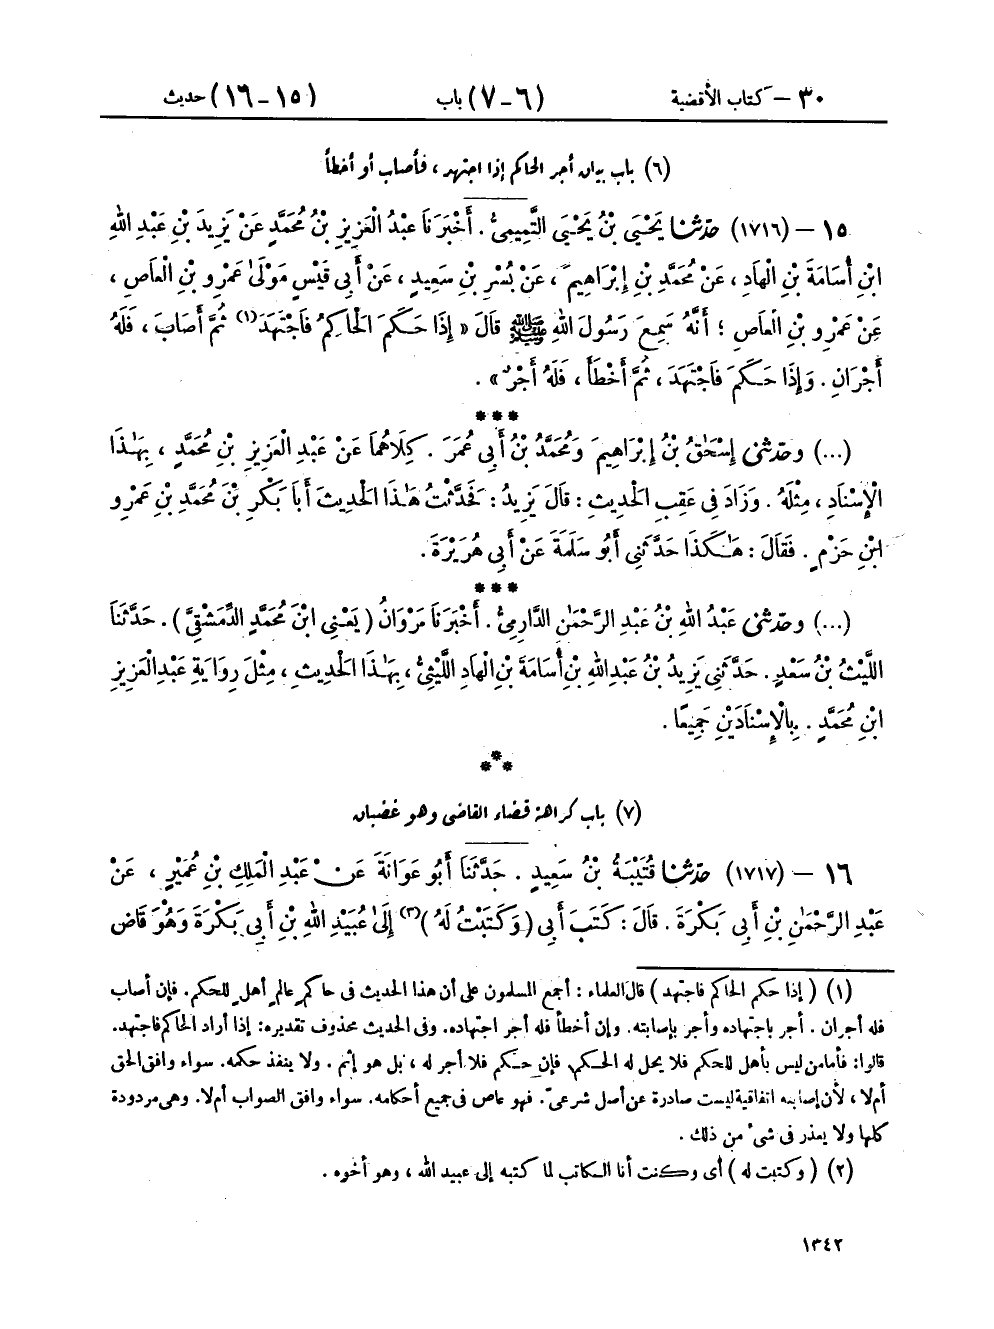 ٣٠ – كتاب الأقضية (٦-٧) باب (١٥-١٦) حديث
(٦) باب بيان أجر الحاكم إذا اجتهد ، فأصاب أو أخطأ
١٥ – (١٧١٦) حدّثنا يَحْيَى بْنُ يَحْيَى التَّمِيمِيُّ . أَخْبَرَنَا عَبْدُ الْعَزِيزِ بْنُ مُحَمَّدٍ عَنْ يَزِيدَ بْنِ عَبْدِ اللهِ
ابْنِ أُسَامَةَ بْنِ الْهَادِ ، عَنْ مُحَمَّدِ بْنِ إِبْرَاهِيمَ ، عَنْ بُسْرِ بْنِ سَعِيدٍ ، عَنْ أَبِي قَيْسٍ مَوْلَىٰ عَمْرِو بْنِ الْعَاصِ ،
عَنْ عَمْرِو بْنِ الْعَاصِ ؛ أَنَّهُ سَمِعَ رَسُولَ اللهِ ﷺ قَالَ « إِذَا حَكَمَ الْحَاكِمُ فَاجْتَهَدَ(١) ثُمَّ أَصَابَ ، فَلَهُ
أَجْرَانِ . وَإِذَا حَكَمَ فَاجْتَهَدَ ، ثُمَّ أَخْطَأَ ، فَلَهُ أَجْرٌ » .
***
(...) وحدّثنى إِسْحَٰقُ بْنُ إِبْرَاهِيمَ وَمُحَمَّدُ بْنُ أَبِي عُمَرَ . كِلَاهُمَا عَنْ عَبْدِ الْعَزِيزِ بْنِ مُحَمَّدٍ ، بِهَٰذَا
الْإِسْنَادِ ، مِثْلَهُ . وَزَادَ فِي عَقِبِ الْحَدِيثِ : قَالَ يَزِيدُ : فَحَدَّثْتُ هَٰذَا الْحَدِيثَ أَبَا بَكْرِ بْنَ مُحَمَّدِ بْنِ عَمْرِو
ابْنِ حَزْمٍ . فَقَالَ : هَٰكَذَا حَدَّثَنِي أَبُو سَلَمَةَ عَنْ أَبِي هُرَيْرَةَ .
***
(...) وحدّثنى عَبْدُ اللهِ بْنُ عَبْدِ الرَّحْمَٰنِ الدَّارِمِيُّ . أَخْبَرَنَا مَرْوَانُ ( يَعْنِي ابْنَ مُحَمَّدٍ الدِّمَشْقِيَّ ) . حَدَّثَنَا
اللَّيْثُ بْنُ سَعْدٍ . حَدَّثَنِي يَزِيدُ بْنُ عَبْدِ اللهِ بْنِ أُسَامَةَ بْنِ الْهَادِ اللَّيْثِيُّ ، بِهَٰذَا الْحَدِيثِ ، مِثْلَ رِوَايَةِ عَبْدِ الْعَزِيزِ
ابْنِ مُحَمَّدٍ . بِالْإِسْنَادَيْنِ جَمِيعًا .
***
(٧) باب كراهة قضاء القاضى وهو غضبان
١٦ – (١٧١٧) حدّثنا قُتَيْبَةُ بْنُ سَعِيدٍ . حَدَّثَنَا أَبُو عَوَانَةَ عَنْ عَبْدِ الْمَلِكِ بْنِ عُمَيْرٍ ، عَنْ
عَبْدِ الرَّحْمَٰنِ بْنِ أَبِي بَكْرَةَ . قَالَ : كَتَبَ أَبِي ( وَكَتَبْتُ لَهُ )(٢) إِلَىٰ عُبَيْدِ اللهِ بْنِ أَبِي بَكْرَةَ وَهُوَ قَاضٍ
(١) ( إذا حكم الحاكم فاجتهد ) قال العلماء : أجمع المسلمون على أن هذا الحديث فى حاكم عالم أهل للحكم. فإن أصاب
فله أجران . أجر باجتهاده وأجر بإصابته. وإن أخطأ فله أجر اجتهاده. وفى الحديث محذوف تقديره: إذا أراد الحاكم فاجتهد.
قالوا: فأما من ليس بأهل للحكم فلا يحل له الحكم. فإن حكم فلا أجر له ، بل هو إثم . ولا ينفذ حكمه. سواء وافق الحق
أم لا ، لأن إصابته اتفاقية ليست صادرة عن أصل شرعىّ. فهو عاص فى جميع أحكامه. سواء وافق الصواب أم لا. وهى مردودة
كلها ولا يعذر فى شىء من ذلك .
(٢) ( وكتبت له ) أى وكنت أنا الكاتب لما كتبه إلى عبيد الله ، وهو أخوه .
١٣٤٢